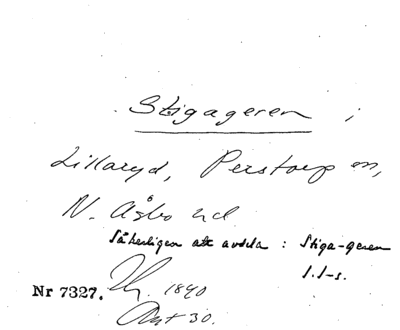 Stigageren i
Lillaryd, Perstorp sn,
N. Åsbo hd
Säkerligen att avdela : Stiga-geren
Nr 7327. 1840
Akt 30.